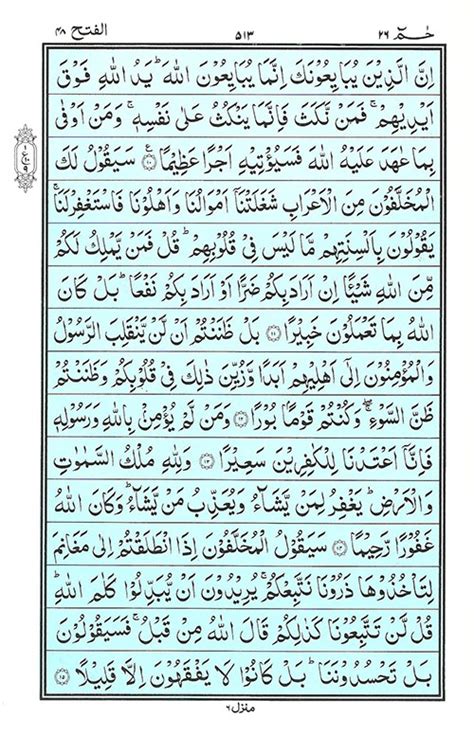 حٰمٓ ٢٦ ٥١٣ الفتح ٤٨
اِنَّ الَّذِيْنَ يُبَايِعُوْنَكَ اِنَّمَا يُبَايِعُوْنَ اللّٰهَ ؕ يَدُ اللّٰهِ فَوْقَ
اَيْدِيْهِمْ ۚ فَمَنْ نَّكَثَ فَاِنَّمَا يَنْكُثُ عَلٰى نَفْسِهٖ ۚ وَمَنْ اَوْفٰى
بِمَا عٰهَدَ عَلَيْهُ اللّٰهَ فَسَيُؤْتِيْهِ اَجْرًا عَظِيْمًا ۟ ١٠ سَيَقُوْلُ لَكَ
الْمُخَلَّفُوْنَ مِنَ الْاَعْرَابِ شَغَلَتْنَاۤ اَمْوَالُنَا وَاَهْلُوْنَا فَاسْتَغْفِرْلَنَا ۚ
يَقُوْلُوْنَ بِاَلْسِنَتِهِمْ مَّا لَيْسَ فِيْ قُلُوْبِهِمْ ؕ قُلْ فَمَنْ يَّمْلِكُ لَكُمْ
مِّنَ اللّٰهِ شَيْـًٔا اِنْ اَرَادَ بِكُمْ ضَرًّا اَوْ اَرَادَ بِكُمْ نَفْعًا ؕ بَلْ كَانَ
اللّٰهُ بِمَا تَعْمَلُوْنَ خَبِيْرًا ١١ بَلْ ظَنَنْتُمْ اَنْ لَّنْ يَّنْقَلِبَ الرَّسُوْلُ
وَالْمُؤْمِنُوْنَ اِلٰۤى اَهْلِيْهِمْ اَبَدًا وَّزُيِّنَ ذٰلِكَ فِيْ قُلُوْبِكُمْ وَظَنَنْتُمْ
ظَنَّ السَّوْءِ ۖۚ وَكُنْتُمْ قَوْمًۢا بُوْرًا ١٢ وَمَنْ لَّمْ يُؤْمِنْۢ بِاللّٰهِ وَرَسُوْلِهٖ
فَاِنَّاۤ اَعْتَدْنَا لِلْكٰفِرِيْنَ سَعِيْرًا ١٣ وَلِلّٰهِ مُلْكُ السَّمٰوٰتِ
وَالْاَرْضِ ؕ يَغْفِرُ لِمَنْ يَّشَآءُ وَيُعَذِّبُ مَنْ يَّشَآءُ ؕ وَكَانَ اللّٰهُ
غَفُوْرًا رَّحِيْمًا ١٤ سَيَقُوْلُ الْمُخَلَّفُوْنَ اِذَا انْطَلَقْتُمْ اِلٰى مَغَانِمَ
لِتَاْخُذُوْهَا ذَرُوْنَا نَتَّبِعْكُمْ ۚ يُرِيْدُوْنَ اَنْ يُّبَدِّلُوْا كَلٰمَ اللّٰهِ ؕ
قُلْ لَّنْ تَتَّبِعُوْنَا كَذٰلِكُمْ قَالَ اللّٰهُ مِنْ قَبْلُ ۚ فَسَيَقُوْلُوْنَ
بَلْ تَحْسُدُوْنَنَا ؕ بَلْ كَانُوْا لَا يَفْقَهُوْنَ اِلَّا قَلِيْلًا ١٥
منزل ٦